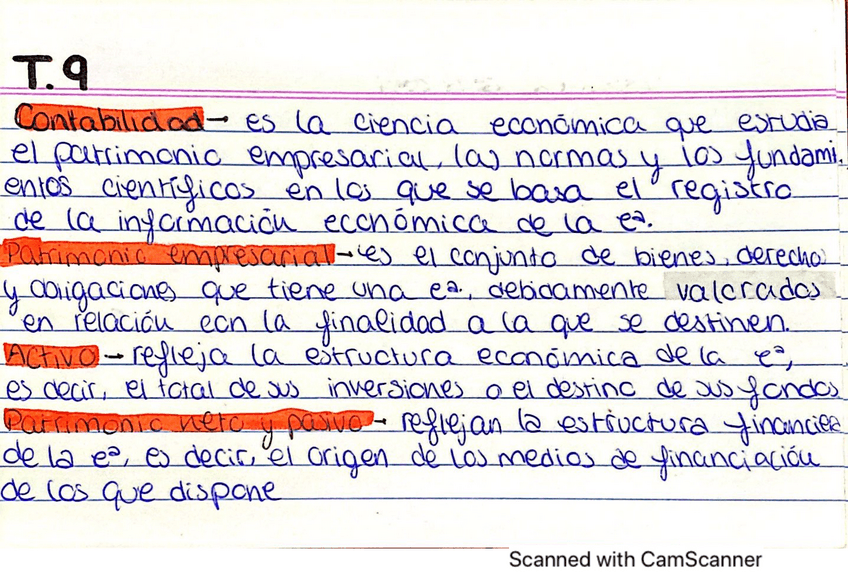 T.9
Contabilidad → es la ciencia económica que estudia
el patrimonio empresarial, las normas y los fundami.
entos científicos en los que se basa el registro
de la información económica de la eª.
Patrimonio empresarial → es el conjunto de bienes, derecho
y obligaciones que tiene una eª, debidamente valorados
en relación con la finalidad a la que se destinen.
Activo → refleja la estructura económica de la eª,
es decir, el total de sus inversiones o el destino de sus fondos
Patrimonio neto y pasivo → reflejan la estructura financiera
de la eª, es decir, el origen de los medios de financiación
de los que dispone
Scanned with CamScanner